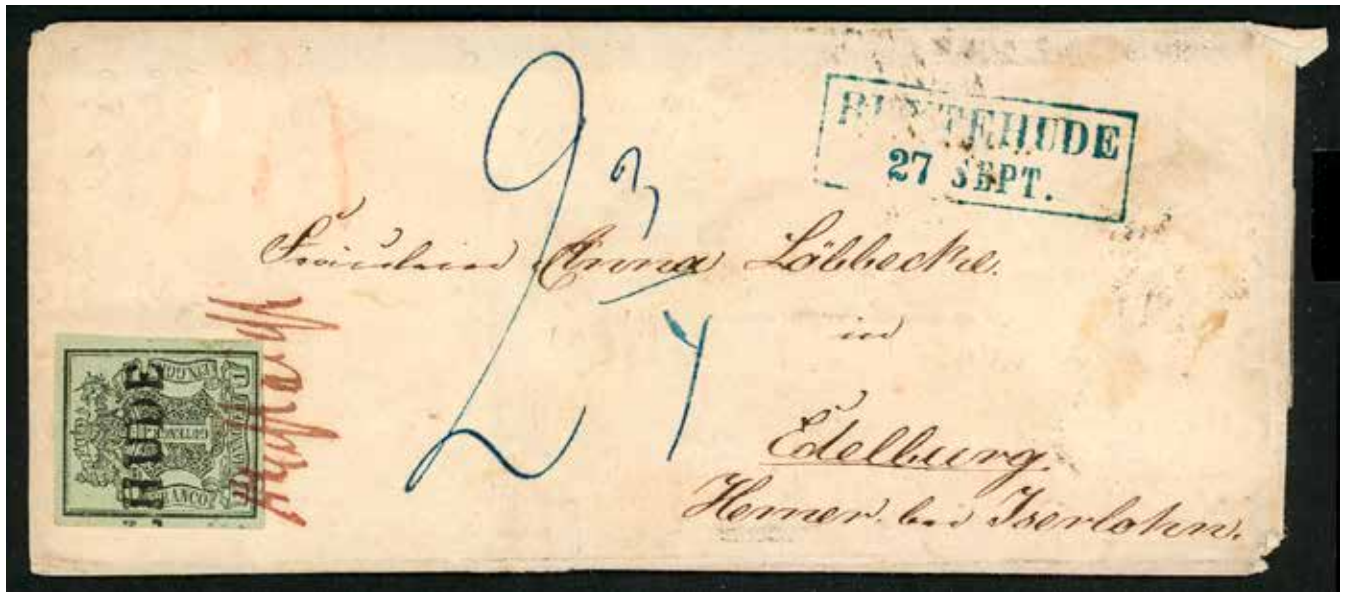 BUXTEHUDE
27 SEPT.
2
Fräulein Anna Löbbecke.
in
Edelburg.
Hemer bei Iserlohn.
HUDE
1
FRANCO